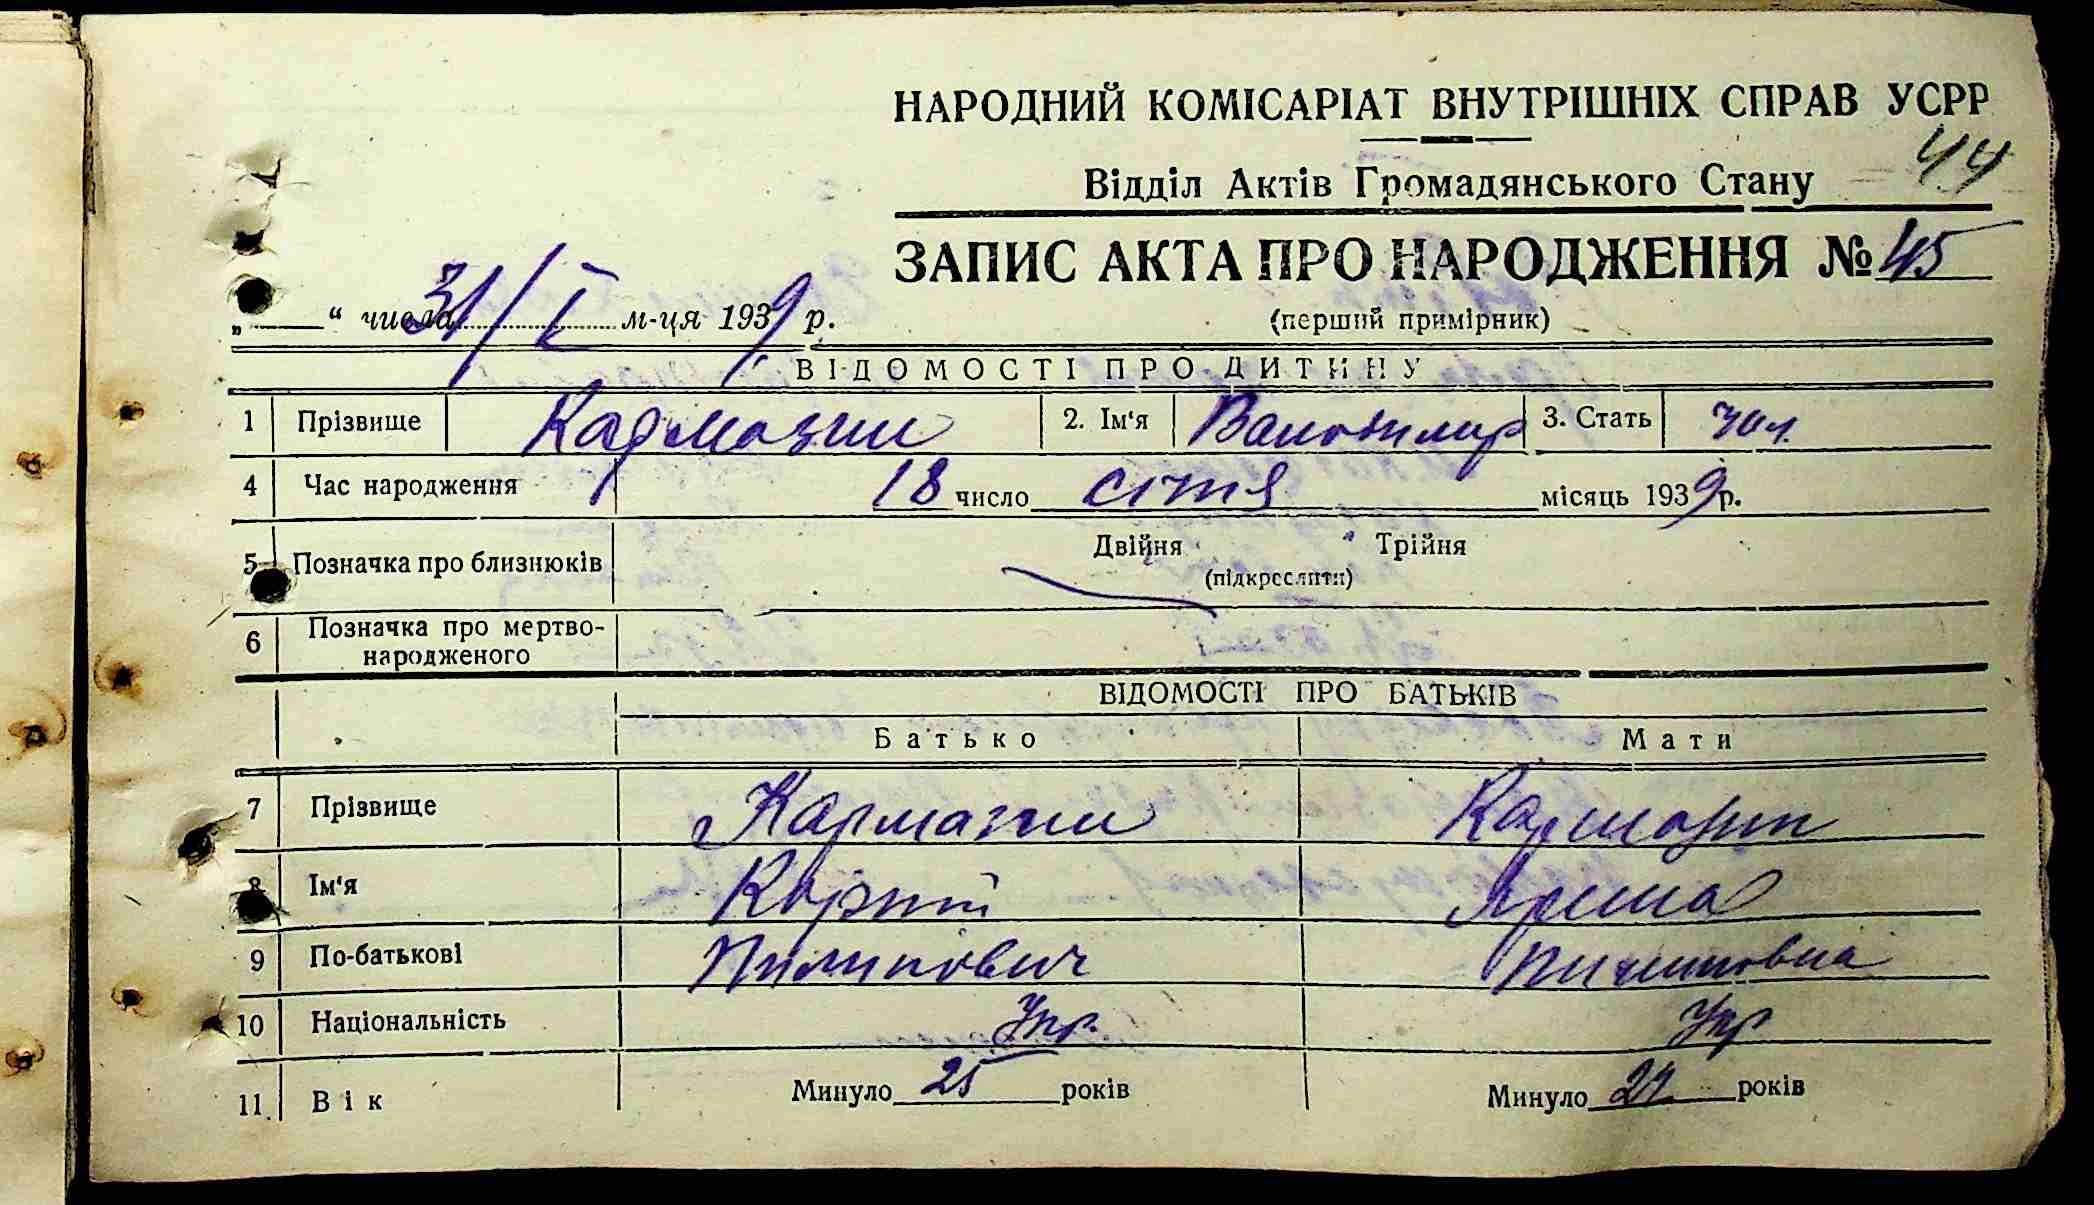 НАРОДНИЙ КОМІСАРІАТ ВНУТРІШНІХ СПРАВ УСРР
44
Відділ Актів Громадянського Стану
ЗАПИС АКТА ПРО НАРОДЖЕННЯ № 45
(перший примірник)
„ “ числа 31/I м-ця 1939 р.
ВІДОМОСТІ ПРО ДИТИНУ
1 Прізвище Кармазин 2. Ім‘я Валотимир 3. Стать чол.
4 Час народження 18 число січня місяць 1939 р.
5 Позначка про близнюків Двійня Трійня
(підкреслити)
6 Позначка про мертво-
народженого
ВІДОМОСТІ ПРО БАТЬКІВ
Батько Мати
7 Прізвище Кармазин Кармазин
8 Ім‘я Корній Ярина
9 По-батькові Пилипович Пилиповна
10 Національність Укр. Укр
11 Вік Минуло 25 років Минуло років